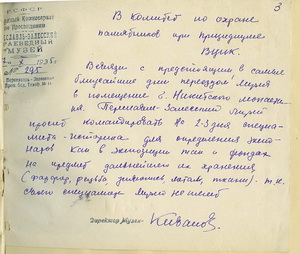 3
РСФСР
Народный Комиссариат
по Просвещению
ПЕРЕСЛАВЛЬ-ЗАЛЕССКИЙ
КРАЕВЕДНЫЙ
МУЗЕЙ
1935 г.
№ 295
В Комитет по охране
памятников при Президиуме
ВЦИК.
В связи с предстоящим в самые
ближайшие дни переездом Музея
в помещение б. Никитского монаст
ря Переславль-Залесский Музей
просит командировать на 2-3 дня специа
листа-историка для определения экспо
натов как в экспозиции так и фондах
на предмет дальнейшего их хранения
(фарфор, резьба, живопись, металл, ткани) т.к.
своего специалиста Музей не имеет
Директор Музея К. Иванов